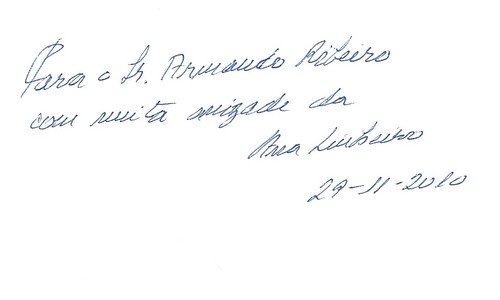 Para o Sr. Armando Ribeiro
com muita amizade da
Ana Pinheiro
29-11-2010